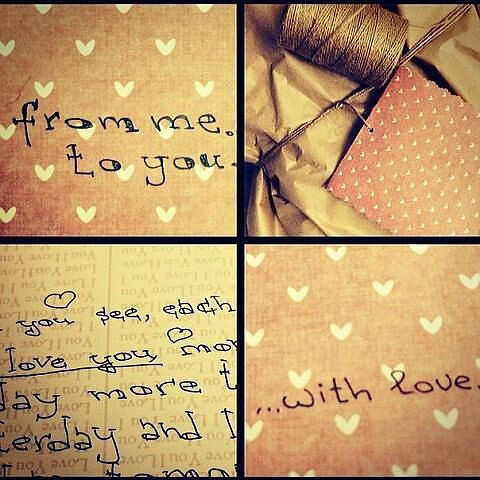 from me.
to you.
you see, each
love you mor
day more t
erday and
...with love.